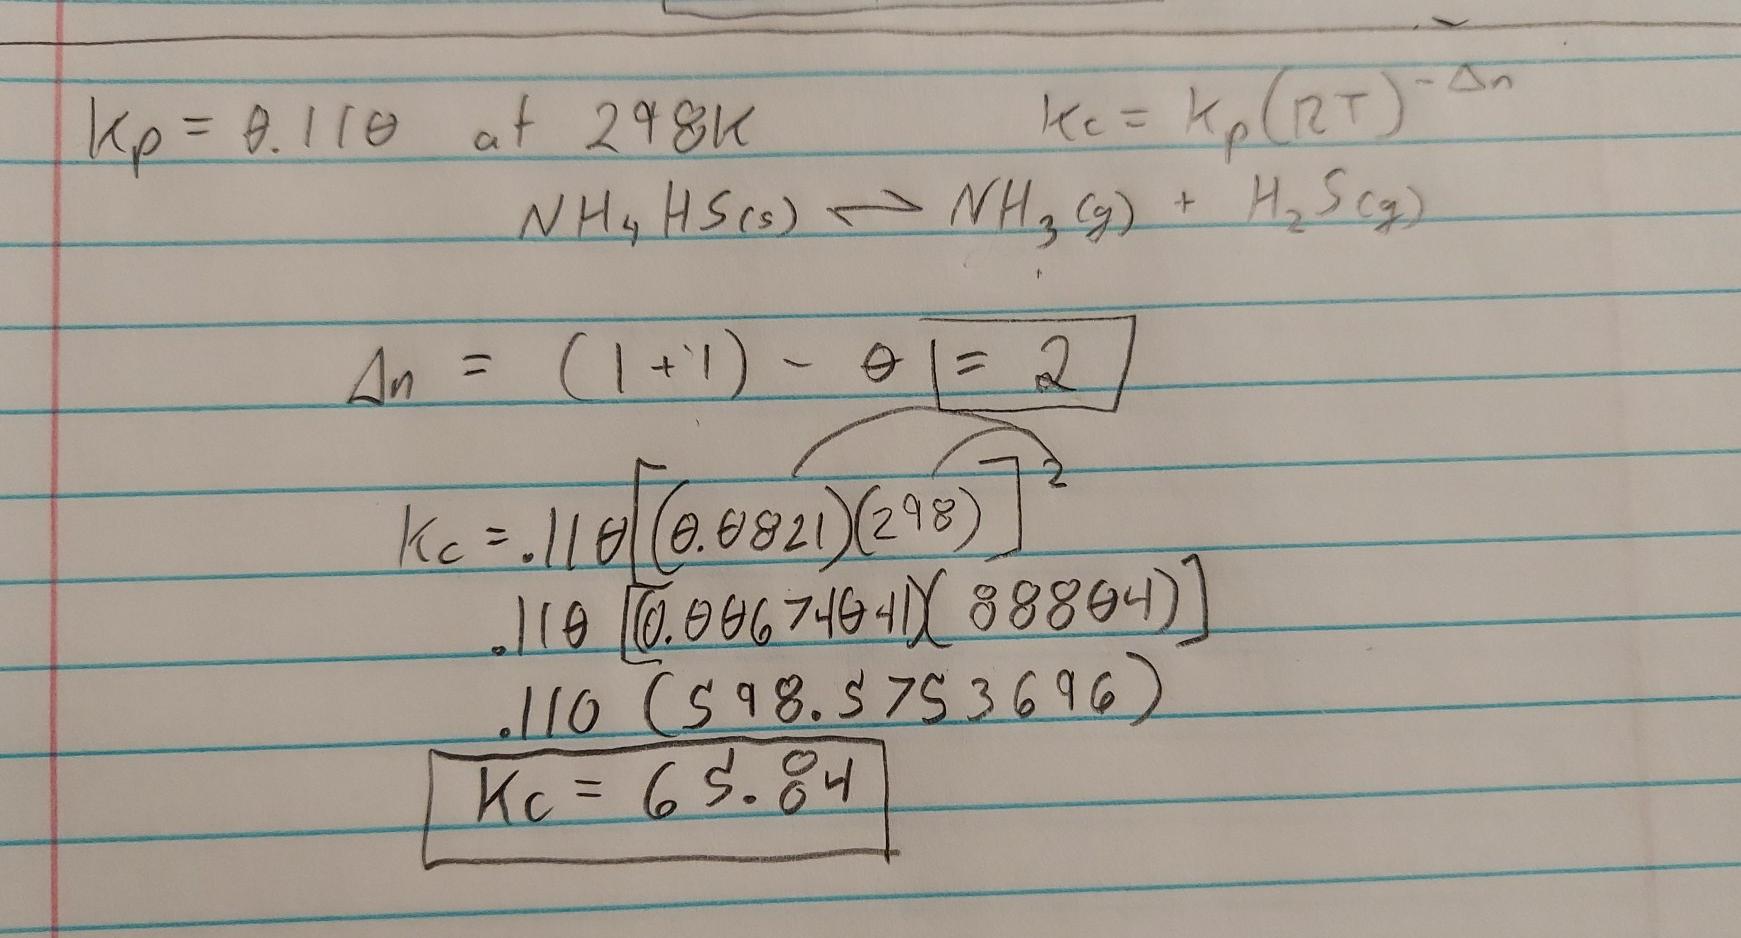 Kp = 0.110 at 298K Kc = Kp(RT)^-Δn
NH₄HS(s) ⇌ NH₃(g) + H₂S(g)
Δn = (1+1) - 0 = 2
Kc = .110[(0.0821)(298)]²
.110 [(0.00674041)(88804)]
.110 (598.5753696)
Kc = 65.84